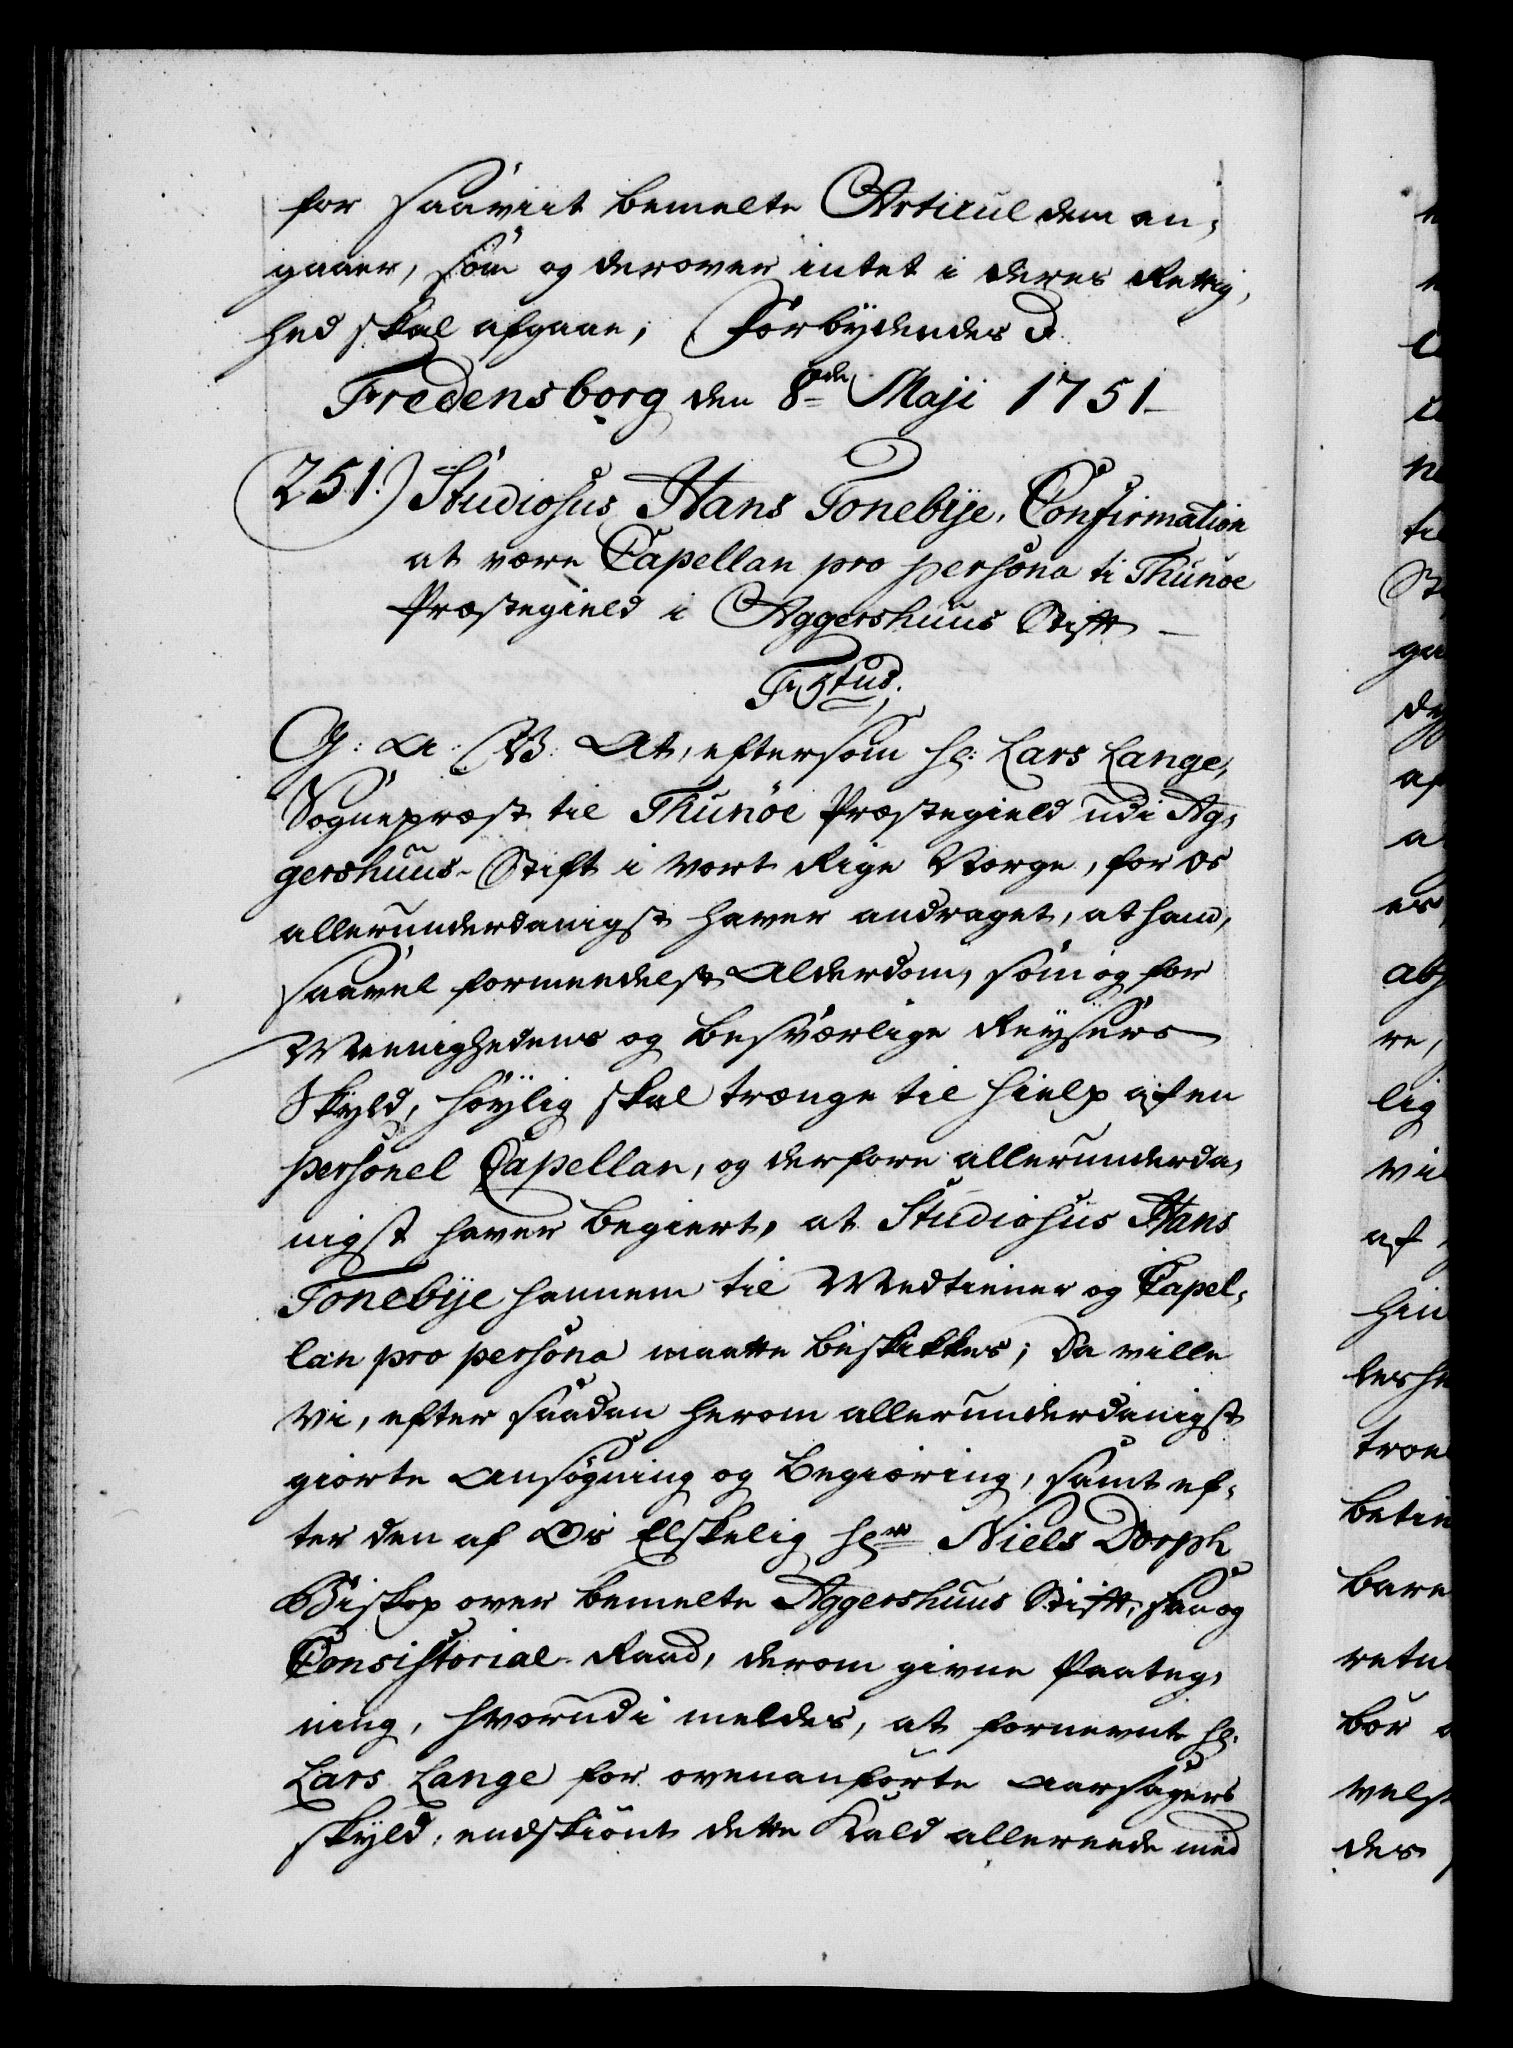 for saavit bemelte Articul dem an-
gaaer, som og derover intet i deres Rettig-
hed skal afgaae; Forbydendes &
Fredensborg den 8de Maji 1751
251.) Studiosus Hans Tonebije, Confirmation
at være Capellan pro persona ti Thunøe
Præstegield i Aggershuus Stift
F. 5tus.
G: A: W: At, eftersom hr: Lars Lange,
Sognepræst til Thunöe Præstegield udi Ag-
gershuus-Stift i Vort Rige Norge, for Os
allerunderdanigst haver andraget, at hand,
saavel formedelst Alderdom, som og for
Meenighedens og besværlige Reysers
Skyld, höylig skal trænge til hielp af en
personel Capellan, og derfore allerunderda-
nigst haver begiert, at Studiosus Hans
Tonebije hannem til Medtiener og Capel-
lan pro persona maatte beskikkes; Da ville
Vi, efter saadan herom allerunderdanigst
giorte Ansögning og Begiæring, samt ef-
ter den af Os Elskelig hrr Niels Dorph
Biskop over bemelte Aggershuus Stift, saa og
Consistorial-Raad, derom givne Paateg-
ning, hvorudi meldes, at fornevnte hr:
Lars Lange for ovenanförte Aarsagers
skyld, endskiönt dette Kald allereede med